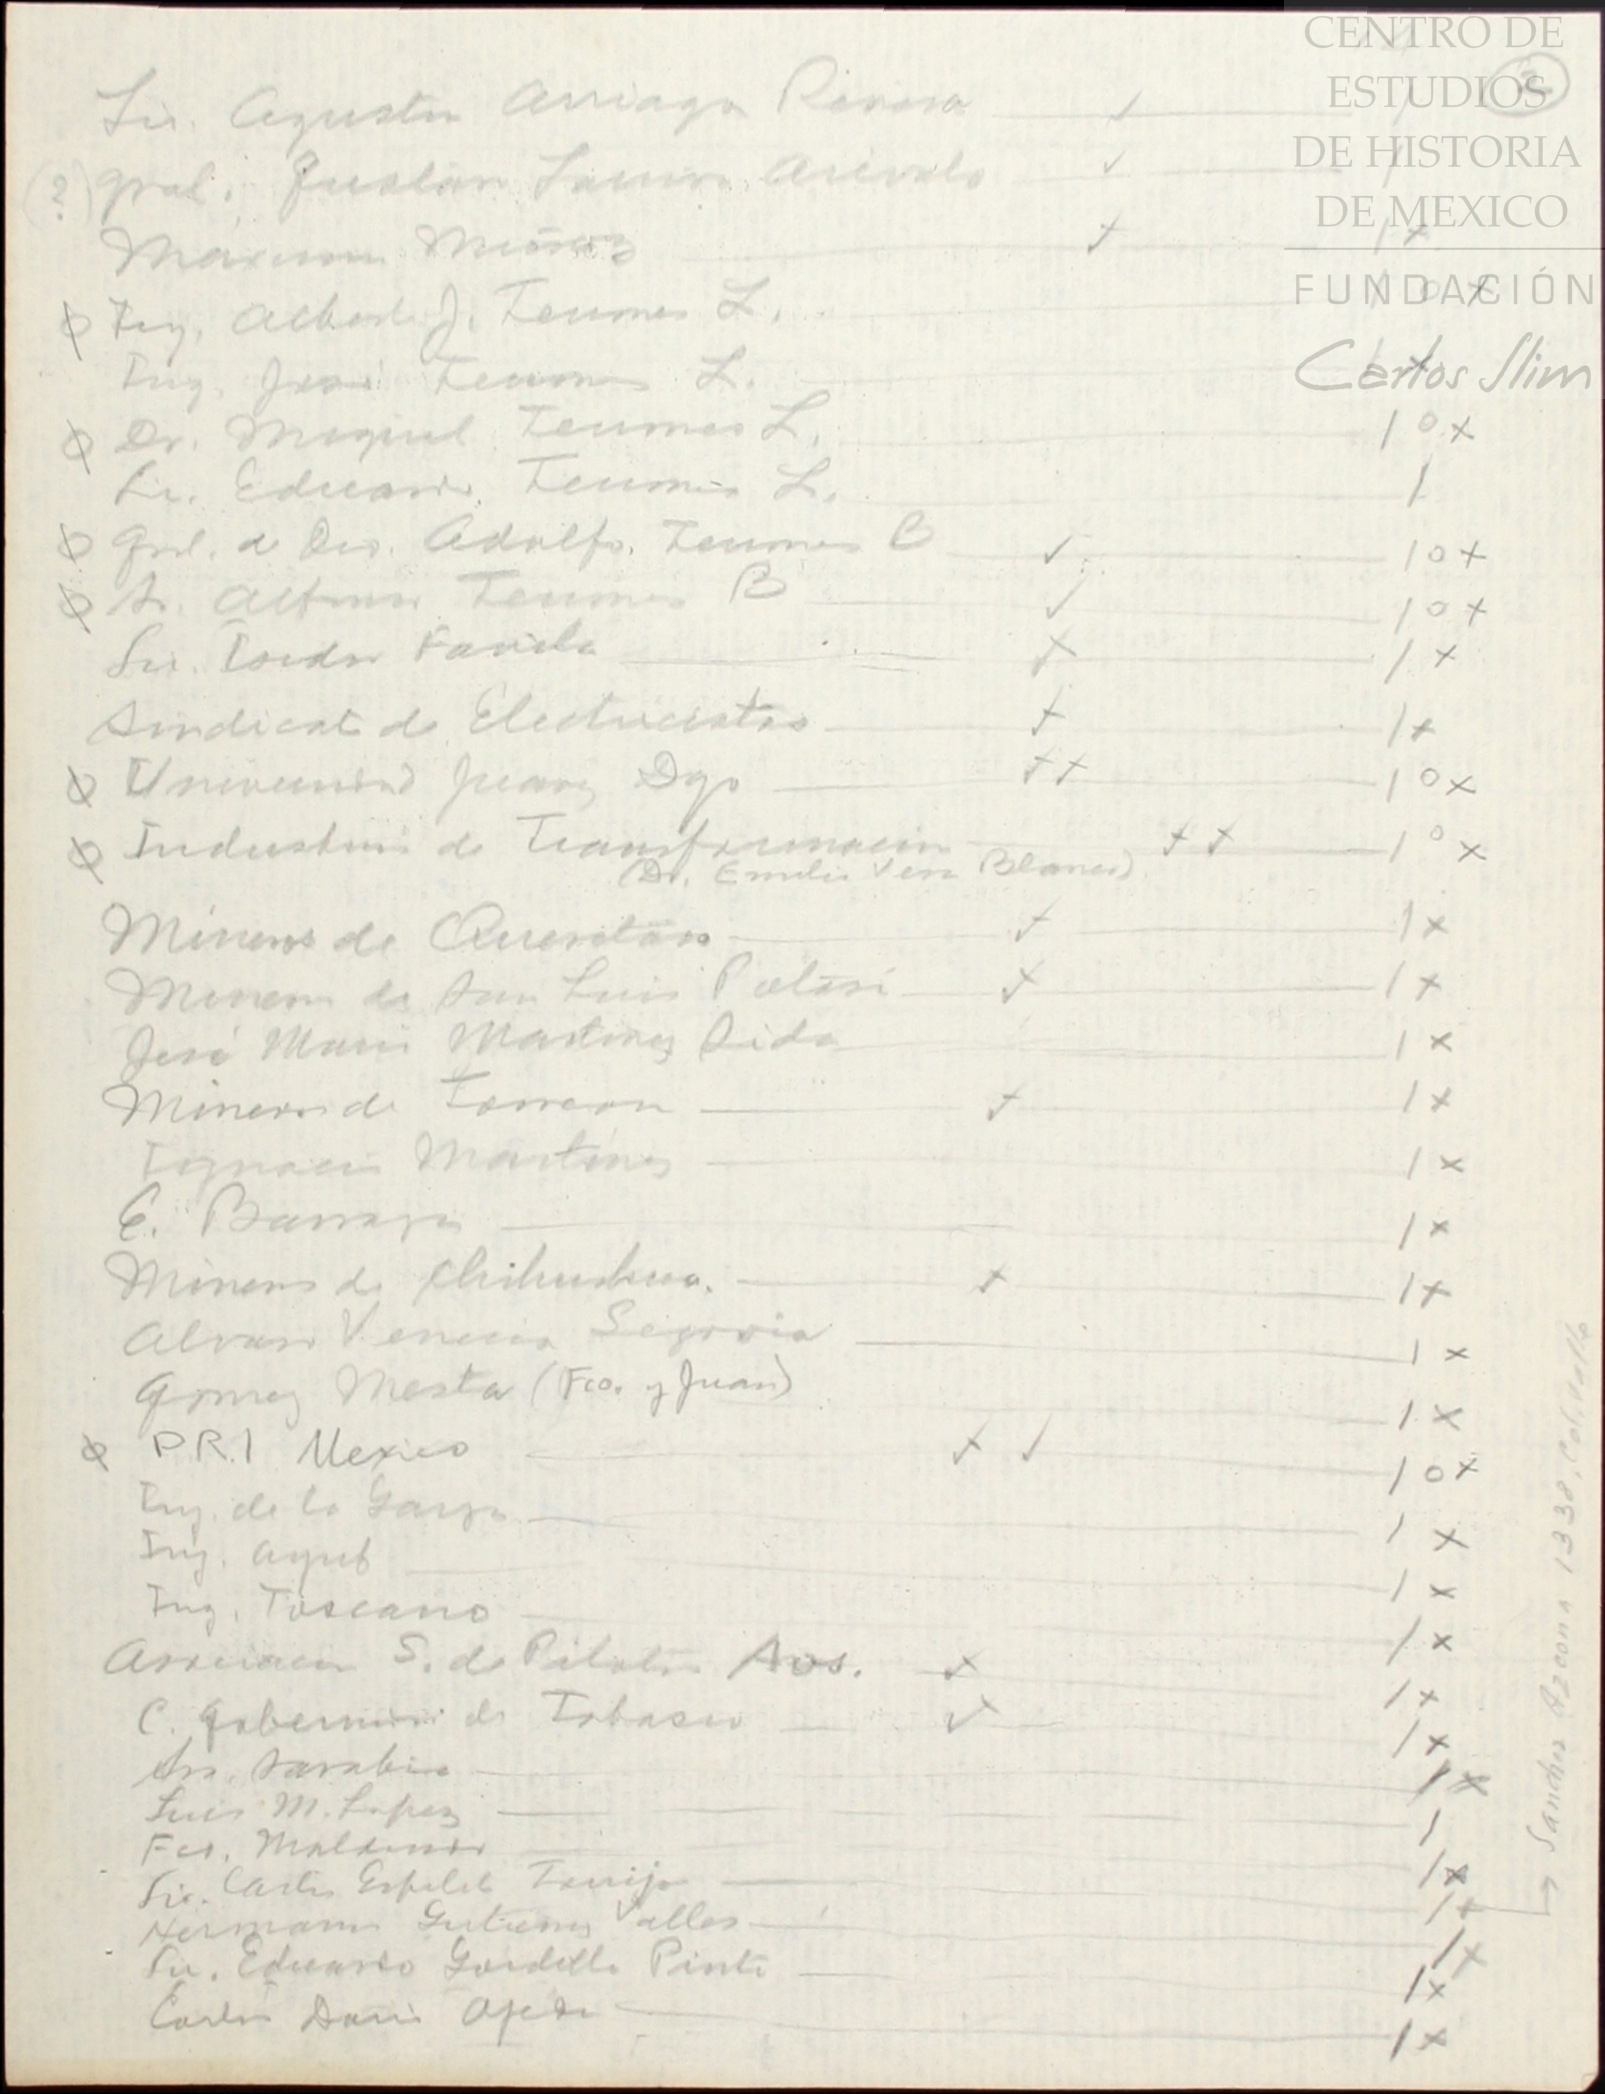 CENTRO DE
ESTUDIOS
DE HISTORIA
DE MEXICO
FUNDACIÓN
Carlos Slim
Lic. Agustin Arriaga Rivera ✓ 1
(?) Gral. Arévalo ✓ 1
Máximo Muñoz ✓ 1 x
Ø Ing. Alberto J. Terrones L. 1 o x
Ing. José Terrones L. 1 x
Ø Dr. Miguel Terrones L. 1 o x
Lic. Eduardo Terrones L. 1
Ø Gral. de Div. Adolfo Terrones B ✓ 1 o x
Ø Sr. Alfonso Terrones B ✓ 1 o x
Lic. Isidro Favela ✓ 1 x
Sindicato de Electricistas ✓ 1 x
Ø Universidad Juarez Dgo ✓ ✓ 1 o x
Ø Industria de Transformacion ✓ ✓ 1 o x
(Dr. Emilio Vera Blanco)
Mineros de Queretaro ✓ 1 x
Mineros de San Luis Potosí ✓ 1 x
José Maria Martinez 1 x
Mineros de Torreon ✓ 1 x
Ignacio Martinez 1 x
E. Barraza 1 x
Mineros de Chihuahua. ✓ 1 x
Alvaro Venecia Segovia 1 x
Gomez Mesta (Fco. y Juan) 1 x
Ø P.R.I Mexico ✓ ✓ 1 o x
Ing. de la Garza 1 x
Ing. Ayub 1 x
Ing. Toscano 1 x
Asociacion S. de Pilotos Avs. ✓ 1 x
C. Gobernador de Tabasco ✓ 1 x
Sra. Sarabia 1 x
Luis M. Lopez 1
Fco. Maldonado 1 x
Lic. Carlos Torrijo 1 x
Hermanos Gutierrez Valles 1 x
Lic. Eduardo Gordillo Pinto 1 x
Carlos Dario Ojeda 1 x
Sanchez Azcona 1338, Col. Valle